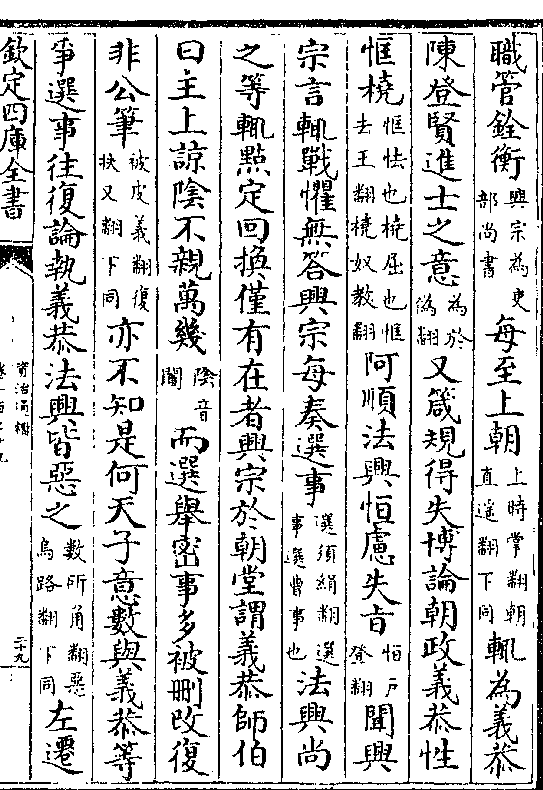 職管銓衡興宗為吏部尚書每至上朝上時掌翻朝直遥翻下同輒為義恭
陳登賢進士之意為於偽翻又箴規得失博論朝政義恭性
恇橈恇怯也橈屈也恇去王翻橈奴教翻阿順法興恒慮失旨恒户登翻聞興
宗言輒戰懼無答興宗每奏選事選須絹翻選事選曹事也法興尚
之等輒點定回換僅有在者興宗於朝堂謂義恭師伯
曰主上諒陰不親萬幾陰音闇而選舉密事多被刪改復
非公筆被皮義翻復扶又翻下同亦不知是何天子意數與義恭等
爭選事往復論執義恭法興皆惡之數所角翻惡烏路翻下同左遷
欽定四庫全書
資治通鑑
二十九